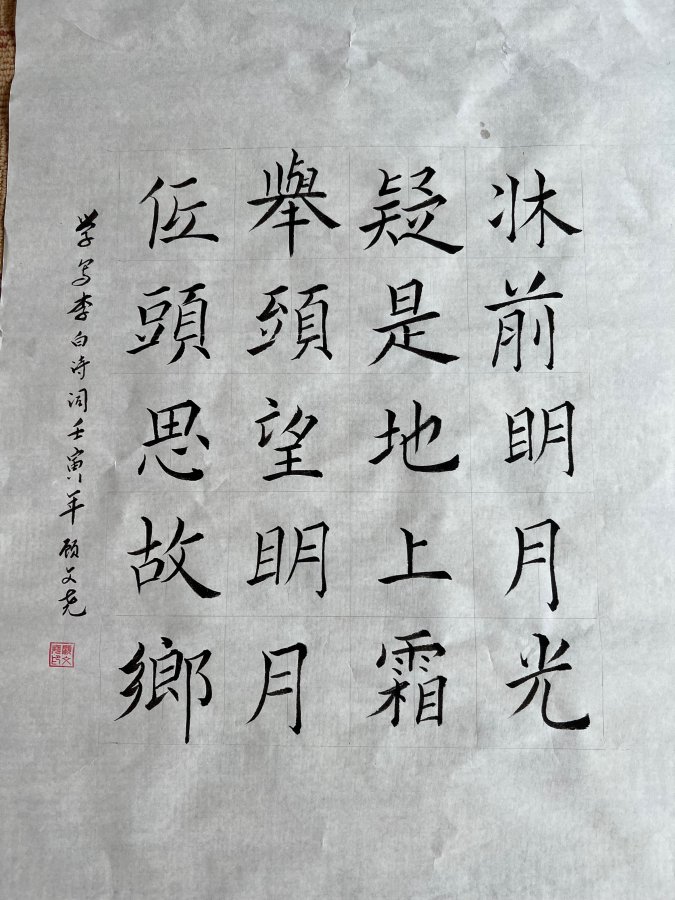 牀前明月光
疑是地上霜
舉頭望明月
低頭思故鄉
学写李白诗词壬寅年顾文尧